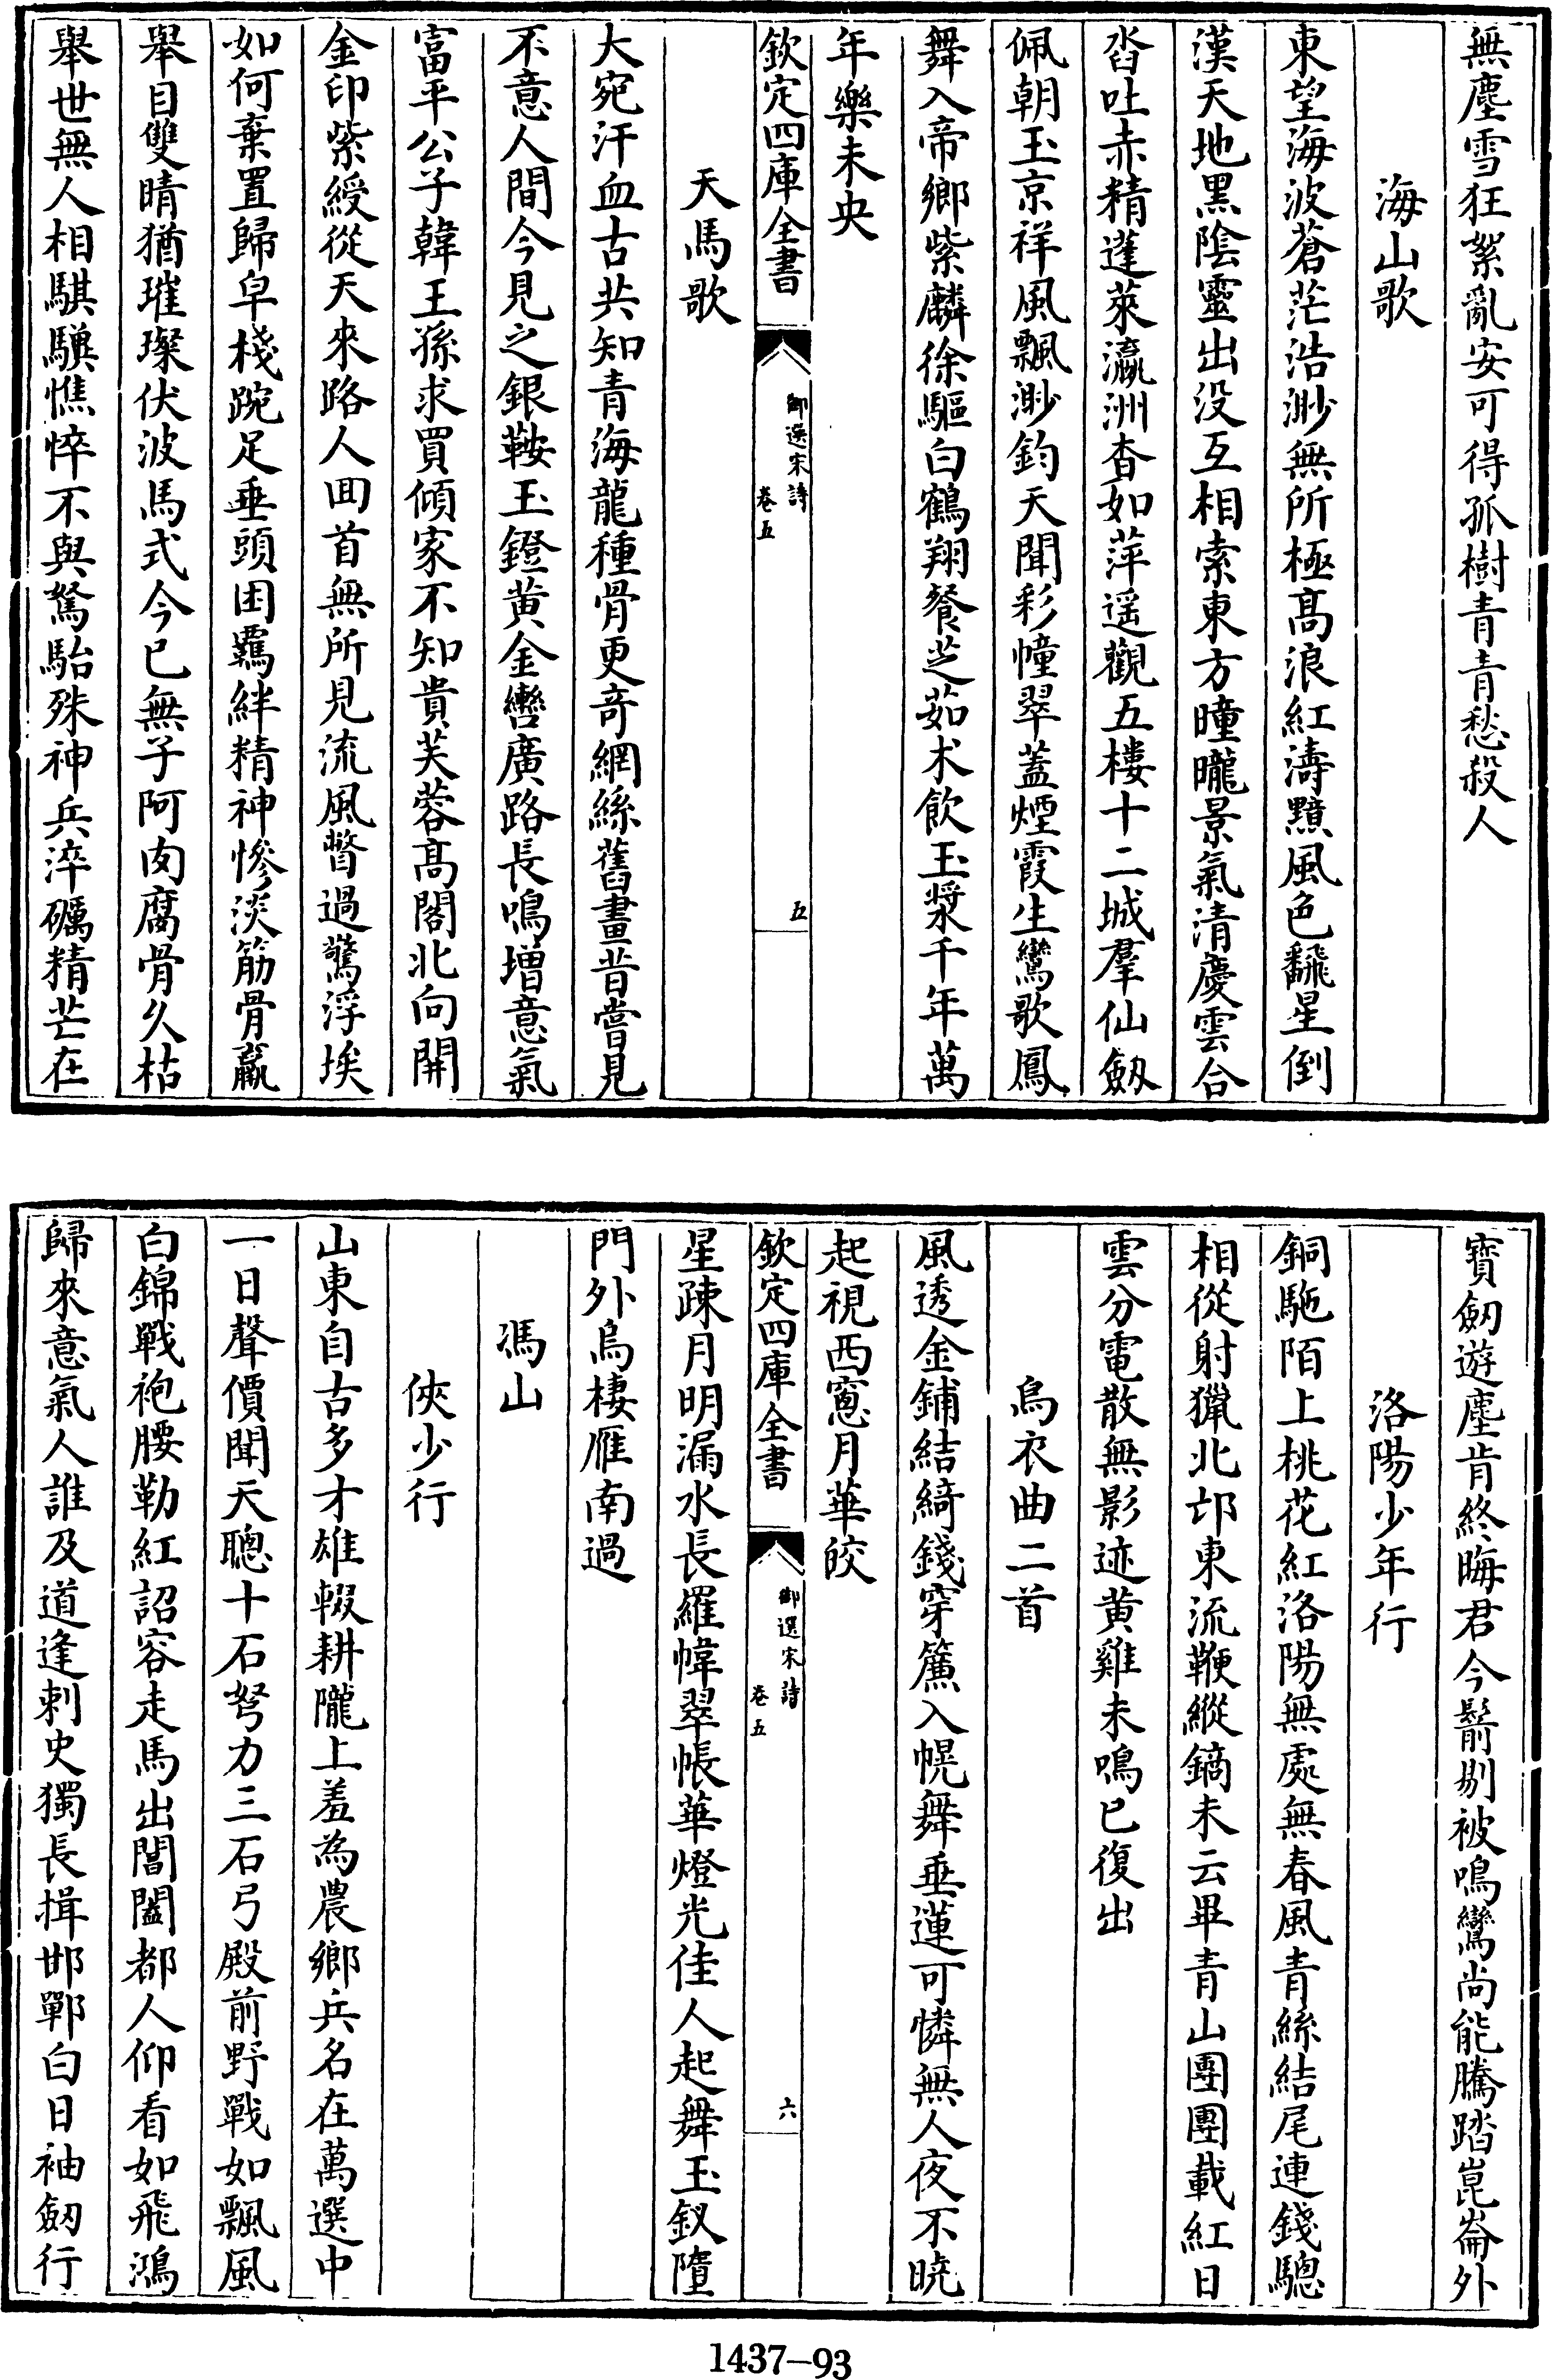 無塵雪狂絮亂安可得孤樹青青愁殺人
海山歌
東望海波蒼茫浩渺無所極髙浪紅濤黯風色飜星倒
漢天地黒陰靈出没互相索東方曈曨景氣清慶雲合
沓吐赤精蓬萊瀛洲杳如萍遥觀五樓十二城羣仙劔
佩朝玉京祥風飄渺鈞天聞彩幢翠蓋煙霞生鸞歌鳳
舞入帝鄉紫麟徐驅白鶴翔餐芝茹术飲玉漿千年萬
年樂未央
欽定四庫全書
御選宋詩
卷五
五
天馬歌
大宛汗血古共知青海龍種骨更奇網絲舊畫昔嘗見
不意人間今見之銀鞍玉鐙黄金轡廣路長鳴增意氣
富平公子韓王孫求買傾家不知貴芙蓉髙閣北向開
金印紫綬從天來路人回首無所見流風瞥過驚浮埃
如何棄置歸皁棧踠足垂頭困羈絆精神慘淡筋骨羸
舉目雙睛猶璀璨伏波馬式今已無子阿肉腐骨久枯
舉世無人相騏驥憔悴不與駑駘殊神兵淬礪精芒在
寳劔遊塵肯終晦君今鬅剔被鳴鸞尚能騰踏崑崙外
洛陽少年行
銅駞陌上桃花紅洛陽無處無春風青絲結尾連錢驄
相從射獵北邙東流鞭縱鏑未云畢青山團團載紅日
雲分電散無影迹黄雞未鳴已復出
烏衣曲二首
風透金鋪結綺錢穿簾入幌舞垂蓮可憐無人夜不曉
起視西窻月華皎
欽定四庫全書
御選宋詩
卷五
六
星疎月明漏水長羅幃翠帳華燈光佳人起舞玉釵墮
門外烏棲雁南過
馮山
俠少行
山東自古多才雄輟耕隴上羞為農鄉兵名在萬選中
一日聲價聞天聰十石弩力三石弓殿前野戰如飄風
白錦戰袍腰勒紅詔容走馬出閶闔都人仰看如飛鴻
歸來意氣人誰及道逢刺史獨長揖邯鄲白日袖劔行
1437—93